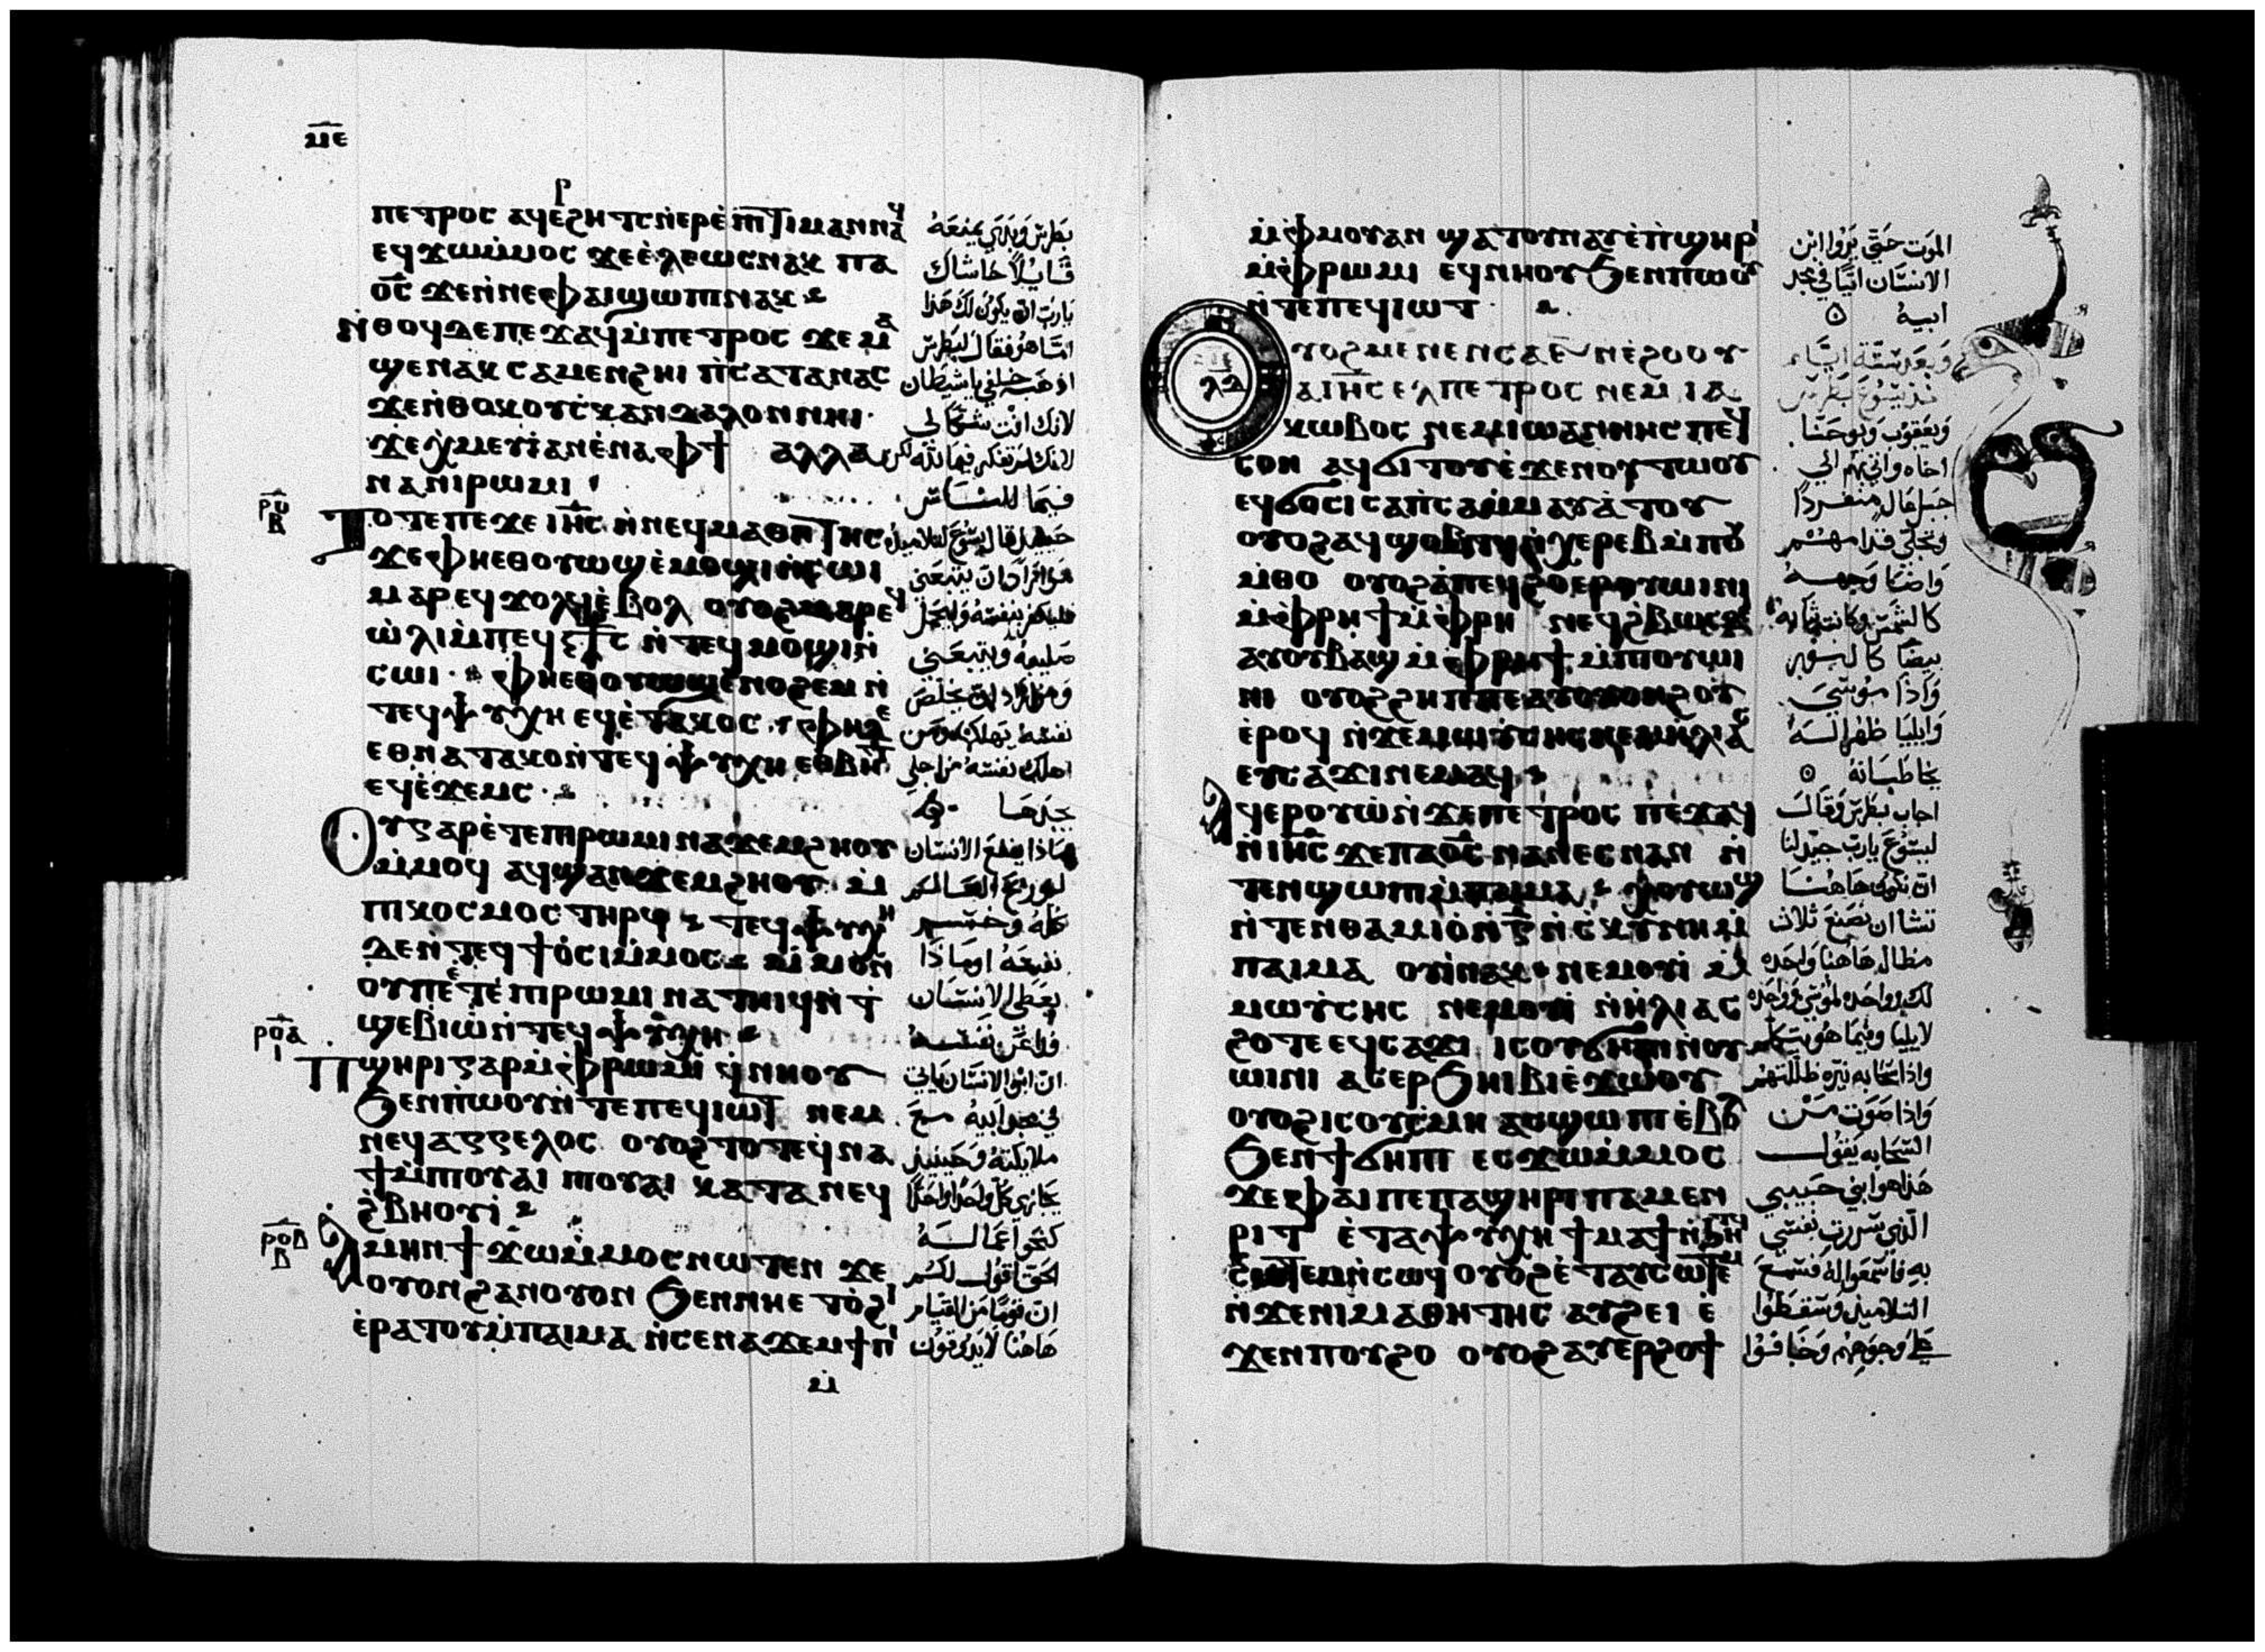 ⲙⲉ
ⲡⲉⲧⲣⲟⲥ ⲁϥⲉⲣϩⲏⲧⲥ ⲛ̇ⲉⲣⲉ̇ⲡⲓϯⲙⲁⲛ ⲛⲁϥ
ⲉϥϫⲱⲙ̇ⲙⲟⲥ ϫⲉⲉ̇ⲗⲉⲱⲥ ⲛⲁⲕ ⲡⲁ
ⲟ̅ⲥ̅ ϫⲉⲛ̇ⲛⲉⲫⲁⲓ ϣⲱⲡⲓ ⲛⲁⲕ
ⲛ̇ⲑⲟϥ ⲇⲉ ⲡⲉϫⲁϥ ⲙ̇ⲡⲉⲧⲣⲟⲥ ϫⲉ ⲙⲁ
ϣⲉⲛⲁⲕ ⲥⲁⲙⲉⲛϩⲏⲓ ⲡ̇ⲥⲁⲧⲁⲛⲁⲥ
ϫⲉⲛ̇ⲑⲟⲕ ⲟⲩⲥ̇ⲕⲁⲛⲇⲁⲗⲟⲛ ⲛⲏⲓ
ϫⲉ ⲭ̇ⲙⲉⲩⲓ̇ ⲁⲛ ⲉ̇ⲛⲁ ⲫϯ ⲁⲗⲗⲁ
ⲛⲁ ⲛⲓⲣⲱⲙⲓ
ⲧⲟⲧⲉ ⲡⲉϫⲉ ⲓⲏ̅ⲥ̅ ⲛ̇ⲛⲉϥⲙⲁⲑⲏⲧⲏⲥ
ϫⲉ ⲫⲏⲉⲑⲟⲩⲱϣ ⲉ̇ⲙⲟϣⲓ ⲛ̇ⲥⲱⲓ
ⲙⲁⲣⲉϥϫⲟⲗϥ ⲉ̇ⲃⲟⲗ ⲟⲩⲟϩ ⲙⲁⲣⲉϥ
ⲱ̇ⲗⲓ ⲙ̇ⲡⲉϥⲥ̅ⲧ̅ⲥ̅ ⲛ̇ⲧⲉϥⲙⲟϣⲓ ⲛ̇
ⲥⲱⲓ ⲫⲏⲉⲑⲟⲩⲱϣ ⲉ̇ⲛⲟϩⲉⲙ ⲛ̇
ⲧⲉϥⲯⲩⲭⲏ ⲉϥⲉ̇ⲧⲁⲕⲟⲥ ⲫⲏ ⲇⲉ
ⲉⲑⲛⲁⲧⲁⲕⲟ ⲛ̇ⲧⲉϥⲯⲩⲭⲏ ⲉⲑⲃⲏⲧ
ⲉϥⲉ̇ϫⲉⲙⲥ
ⲟⲩ ⲅⲁⲣ ⲉ̇ⲧⲉ ⲡⲓⲣⲱⲙⲓ ⲛⲁϫⲉⲙϩⲏⲟⲩ
ⲙ̇ⲙⲟϥ ⲁϥϣⲁⲛϫⲉⲙϩⲏⲟⲩ ⲙ̇
ⲡⲓⲕⲟⲥⲙⲟⲥ ⲧⲏⲣϥ ⲧⲉϥⲯⲩⲭⲏ
ⲇⲉ ⲛ̇ⲧⲉϥϯⲟ̇ⲥⲓ ⲙ̇ⲙⲟⲥ ⲙ̇ⲙⲟⲛ
ⲟⲩ ⲡⲉⲧⲉ̇ ⲡⲓⲣⲱⲙⲓ ⲛⲁⲧⲏⲓϥ ⲛ̇ⲧ
ϣⲉⲃⲓⲱ̇ ⲛ̇ⲧⲉϥⲯⲩⲭⲏ
ⲣⲟⲁ
ⲓ
ⲡϣⲏⲣⲓ ⲅⲁⲣ ⲙ̇ⲫⲣⲱⲙⲓ ϥ̇ⲛⲏⲟⲩ
ϧⲉⲛ ⲡ̇ⲱⲟⲩ ⲛ̇ⲧⲉ ⲡⲉϥⲓⲱⲧ ⲛⲉⲙ
ⲛⲉϥⲁⲅⲅⲉⲗⲟⲥ ⲟⲩⲟϩ ⲧⲟⲧⲉ ϥ̇ⲛⲁ
ϯ ⲙ̇ⲡⲓⲟⲩⲁⲓ ⲡⲓⲟⲩⲁⲓ ⲕⲁⲧⲁ ⲛⲉϥ
ϩ̇ⲃⲏⲟⲩⲓ̇
ⲣⲟⲃ
ⲃ
ⲁⲙⲏⲛ ϯϫⲱⲙ̇ⲙⲟⲥ ⲛⲱⲧⲉⲛ ϫⲉ
ⲟⲩⲟⲛ ϩⲁⲛⲟⲩⲟⲛ ϧⲉⲛ ⲛⲏⲉⲧⲟ̇ϩⲓ
ⲉ̇ⲣⲁⲧⲟⲩ ⲙ̇ⲡⲁⲓⲙⲁ ⲛ̇ⲥⲉⲛⲁϫⲉⲙϯⲡⲓ
ⲙ̇
بطرس وبدى يمنعه
قايلاً حاشاك
يارب ان يكون لك هذا
اما هو فقال لبطرس
اذهب خلفي يا شيطان
لانك انت شك لي
لانك لم تفكر فيما لله لكن
فيما للناس
حينيذ قال يسوع لتلاميذه
من اراد ان يتبعني
فليكفر بنفسه وليحمل
صليبه ويتبعني
ومن اراد ان يخلص
نفسه يهلكها ومن
اهلك نفسه من اجلي
يجدها
ماذا ينفع الانسان
لو ربح العالم
كله وخسر
نفسه او ماذا
يعطى الانسان
فداً عن نفسه
ان ابن الانسان ياتي
في مجد ابيه مع
ملايكته وحينيذ
يجازي كل واحد واحداً
كنحو اعماله
الحق اقول لكم
ان قوماً من القيام
هاهنا لا يذوقون
ⲙ̇ⲫⲙⲟⲩ ⲁⲛ ϣⲁⲧⲟⲩⲛⲁⲩ ⲉ̇ⲡ̇ϣⲏⲣⲓ
ⲙ̇ⲫⲣⲱⲙⲓ ⲉϥⲛⲏⲟⲩ ϧⲉⲛ ⲡⲱⲟⲩ
ⲛ̇ⲧⲉ ⲡⲉϥⲓⲱⲧ
ⲗⲇ
ⲟⲩⲟϩ ⲙⲉⲛⲉⲛⲥⲁ ⲋ̅ ⲛ̇ⲉϩⲟⲟⲩ
ⲁ ⲓⲏ̅ⲥ̅ ⲉⲗ ⲡⲉⲧⲣⲟⲥ ⲛⲉⲙ ⲓⲁ
ⲕⲱⲃⲟⲥ ⲛⲉⲙ ⲓⲱⲁⲛⲛⲏⲥ ⲡⲉϥ
ⲥⲟⲛ ⲁϥϭⲓⲧⲟⲩ ⲉ̇ϫⲉⲛ ⲟⲩⲧⲱⲟⲩ
ⲉϥϭⲟⲥⲓ ⲥⲁⲡ̇ⲥⲁ ⲙ̇ⲙⲁⲩⲁ̇ⲧⲟⲩ
ⲟⲩⲟϩ ⲁϥϣⲟⲃⲧϥ ⲛ̇ⲭⲉⲣⲉⲃ ⲙ̇ⲡⲟⲩ
ⲙ̇ⲑⲟ ⲟⲩⲟϩ ⲁ̇ ⲡⲉϥϩⲟ ⲉⲣⲟⲩⲱⲓⲛⲓ
ⲙ̇ⲫⲣⲏϯ ⲙ̇ⲫⲣⲏ ⲛⲉϥϩ̇ⲃⲱⲥ ⲇⲉ
ⲁⲩⲟⲩⲃⲁϣ ⲙ̇ⲫⲣⲏϯ ⲙ̇ⲡⲓⲟⲩⲱⲓ
ⲛⲓ ⲟⲩⲟϩ ϩⲏⲡⲡⲉ ⲁⲩⲟⲩⲟⲛϩⲟⲩ
ⲉ̇ⲣⲟϥ ⲛ̇ϫⲉ ⲙⲱⲩ̇ⲥⲏⲥ ⲛⲉⲙ ⲏⲗⲓⲁⲥ
ⲉⲩⲥⲁϫⲓ ⲛⲉⲙⲁϥ
ⲁϥⲉⲣⲟⲩⲱ̇ ⲛ̇ϫⲉ ⲡⲉⲧⲣⲟⲥ ⲡⲉϫⲁϥ
ⲛ̇ⲓⲏ̅ⲥ̅ ϫⲉ ⲡⲁⲟ̅ⲥ̅ ⲛⲁⲛⲉⲥ ⲛⲁⲛ ⲛ̇
ⲧⲉⲛϣⲱⲡⲓ ⲙ̇ⲡⲁⲓⲙⲁ ⲭ̇ⲟⲩⲱϣ
ⲛ̇ⲧⲉⲛⲑⲁⲙⲓⲟ̇ ⲛ̇ⲅ̅ ⲛ̇ⲥ̇ⲕⲩⲛⲏ ⲙ̇
ⲡⲁⲓⲙⲁ ⲟⲩⲓ̇ ⲛⲁⲕ ⲛⲉⲙ ⲟⲩⲓ̇ ⲙ̇
ⲙⲱⲩ̇ⲥⲏⲥ ⲛⲉⲙ ⲟⲩⲓ̇ ⲛ̇ⲏ̇ⲗⲓⲁⲥ
ϩⲟⲧⲉ ⲉϥⲥⲁϫⲓ ⲓⲥ ⲟⲩϭⲏⲡⲓ ⲛ̇ⲟⲩ
ⲱⲓⲛⲓ ⲁⲥⲉⲣϧⲏⲓⲃⲓ ⲉ̇ϫⲱⲟⲩ
ⲟⲩⲟϩ ⲓⲥ ⲟⲩⲥ̇ⲙⲏ ⲁⲥϣⲱⲡⲓ ⲉ̇ⲃⲟⲗ
ϧⲉⲛ ϯϭⲏⲡⲓ ⲉⲥϫⲱⲙ̇ⲙⲟⲥ
ϫⲉ ⲫⲁⲓ ⲡⲉ ⲡⲁϣⲏⲣⲓ ⲡⲁⲙⲉⲛ
ⲣⲓⲧ ⲉ̇ⲧⲁ ⲯⲩⲭⲏ ϯⲙⲁϯ ⲛ̇ϧⲏⲧϥ
ⲥⲱⲧⲉⲙ ⲛ̇ⲥⲱϥ ⲟⲩⲟϩ ⲉ̇ⲧⲁⲩⲥⲱⲧⲉⲙ
ⲛ̇ϫⲉ ⲛⲓⲙⲁⲑⲏⲧⲏⲥ ⲁⲩϩⲉⲓ ⲉ̇
ϫⲉⲛ ⲡⲟⲩϩⲟ ⲟⲩⲟϩ ⲁⲩⲉⲣϩⲟϯ
الموت حتى يروا ابن
الانسان اتياً في مجد
ابيه
وبعد ستة ايام
اخذ يسوع بطرس
ويعقوب ويوحنا
اخاه واتى بهم الى
جبل عال منفرداً
وتجلى قدامهم
واضا وجهه
كالشمس وكانت ثيابه
بيضا كالنور
واذا موسى
وايليا ظهرا له
يخاطبانه
اجاب بطرس وقال
ليسوع يارب جيد لنا
ان نكون هاهنا
تشا ان نصنع ثلاث
مظال هاهنا واحده
لك وواحده لموسى وواحده
لايليا وفيما هو يتكلم
واذا سحابه نيره ظللتهم
واذا صوت من
السحابه يقول
هذا هو ابني حبيبي
الذي سرت نفسي
به فاسمعوا له فسمع
التلاميذ وسقطوا
على وجوههم وخافوا